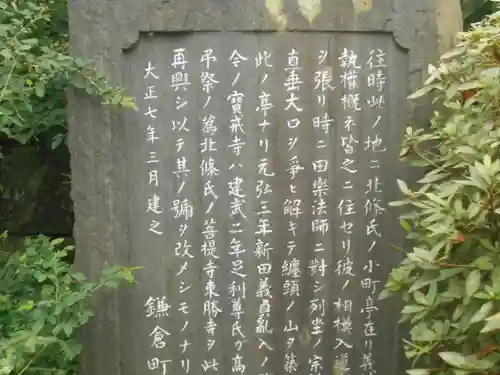 往時此ノ地ニ北條氏ノ小町亭在リ義
執権概ネ皆之ニ住セリ彼ノ相模入道
ヲ張リ時ニ田樂法師ニ對シ列坐ノ宗
直垂大口ヲ爭ヒ解キテ纏頭ノ山ヲ築
此ノ亭ナリ元弘三年新田義貞亂入ノ
今ノ寶戒寺ハ建武二年足利尊氏ガ高
弔祭ノ爲北條氏ノ菩提寺東勝寺ヲ此
再興シ以テ其ノ號ヲ改メシモノナリ
大正七年三月建之
鎌倉町